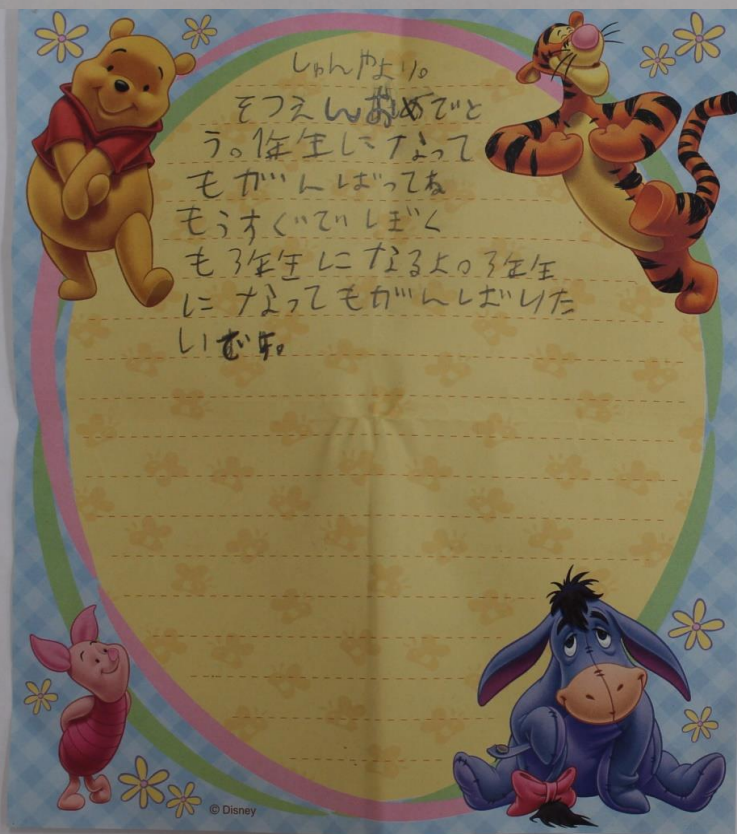 しゅんやより。
そつえんおめでと
う。1年生になって
もがんばってね
もうすぐでぼく
も3年生になるよ。3年生
になってもがんばりた
いむよ。
© Disney